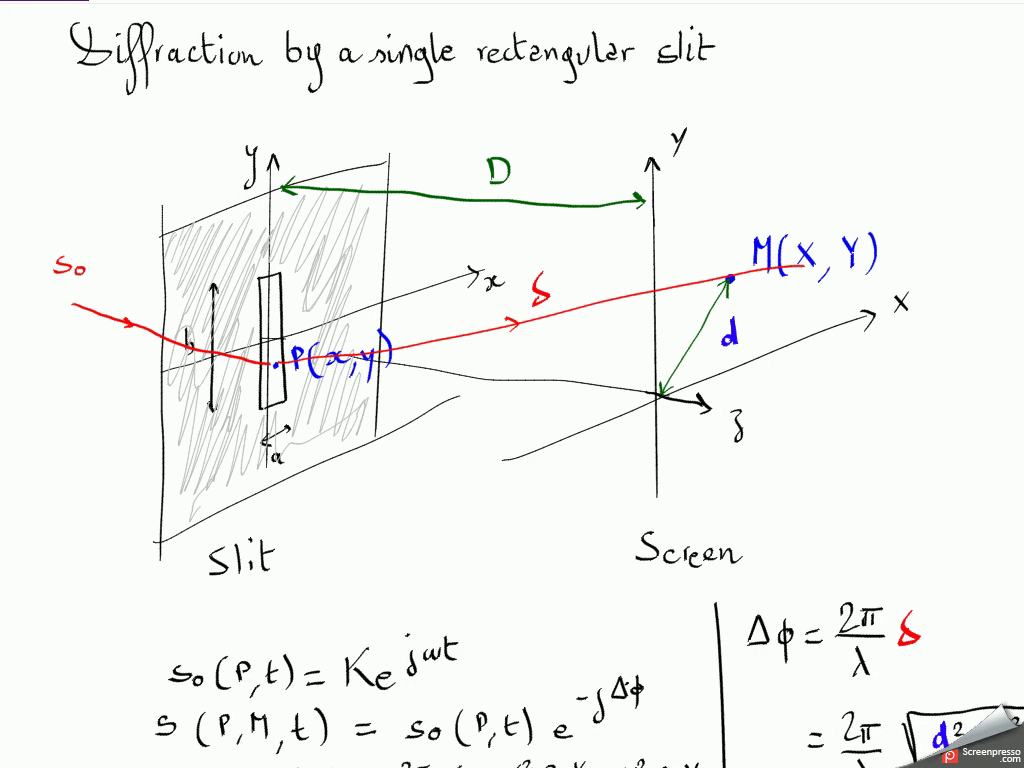 Diffraction by a single rectangular slit
y
Y
D
M(X, Y)
S₀
x
δ
X
d
b
P(x,y)
a
z
Slit
Screen
Δφ = 2π/λ δ
s₀(P,t) = K e^jωt
s(P,M,t) = s₀(P,t) e^-jΔφ
= 2π/λ √d²
Screenpresso
.com